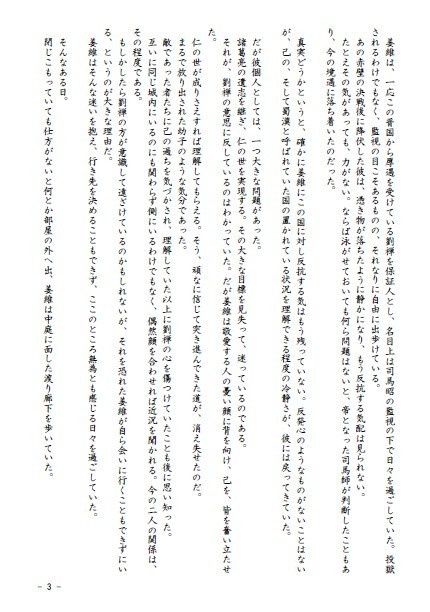 姜維は、一応この晋国から厚遇を受けている劉禅を保証人とし、名目上は司馬昭の監視の下で日々を過ごしていた。投獄
されるわけでもなく、監視の目こそあるものの、それなりに自由に出歩けている。
あの赤壁の決戦後に降伏した彼は、憑き物が落ちたように静かになり、もう反抗する気配は見られない。
たとえその気があっても、力がない。ならば泳がせておいても何ら問題はないと、帝となった司馬師が判断したこともあ
り、今の境遇に落ち着いたのだった。
真実どうかというと、確かに姜維にこの国に対し反抗する気はもう残っていない。反発心のようなものがないことはない
が、己の、そして蜀漢と呼ばれていた国の置かれている状況を理解できる程度の冷静さが、彼には戻ってきていた。
だが彼個人としては、一つ大きな問題があった。
諸葛亮の遺志を継ぎ、仁の世を実現する。その大きな目標を見失って、迷っているのである。
それが、劉禅の意思に反しているのはわかっていた。だが姜維は敬愛する人の憂い顔に背を向け、己を、皆を奮い立たせ
た。
仁の世が成りさえすれば理解してもらえる。そう、頑なに信じて突き進んできた道が、消え失せたのだ。
まるで放り出された幼子のような気分であった。
敵であった者たちに己の過ちを気づかされ、理解していた以上に劉禅の心を傷つけていたことも後に思い知った。
互いに同じ城内にいるのにも関わらず側にいるわけでもなく、偶然顔を合わせれば近況を聞かれる。今の二人の関係は、
その程度である。
もしかしたら劉禅の方が意識して遠ざけているのかもしれないが、それを恐れた姜維が自ら会いに行くこともできずにい
る、というのが大きな理由だ。
姜維はそんな迷いを抱え、行き先を決めることもできず、ここのところ無為とも感じる日々を過ごしていた。
そんなある日。
閉じこもっていても仕方がないと何とか部屋の外へ出、姜維は中庭に面した渡り廊下を歩いていた。
- 3 -